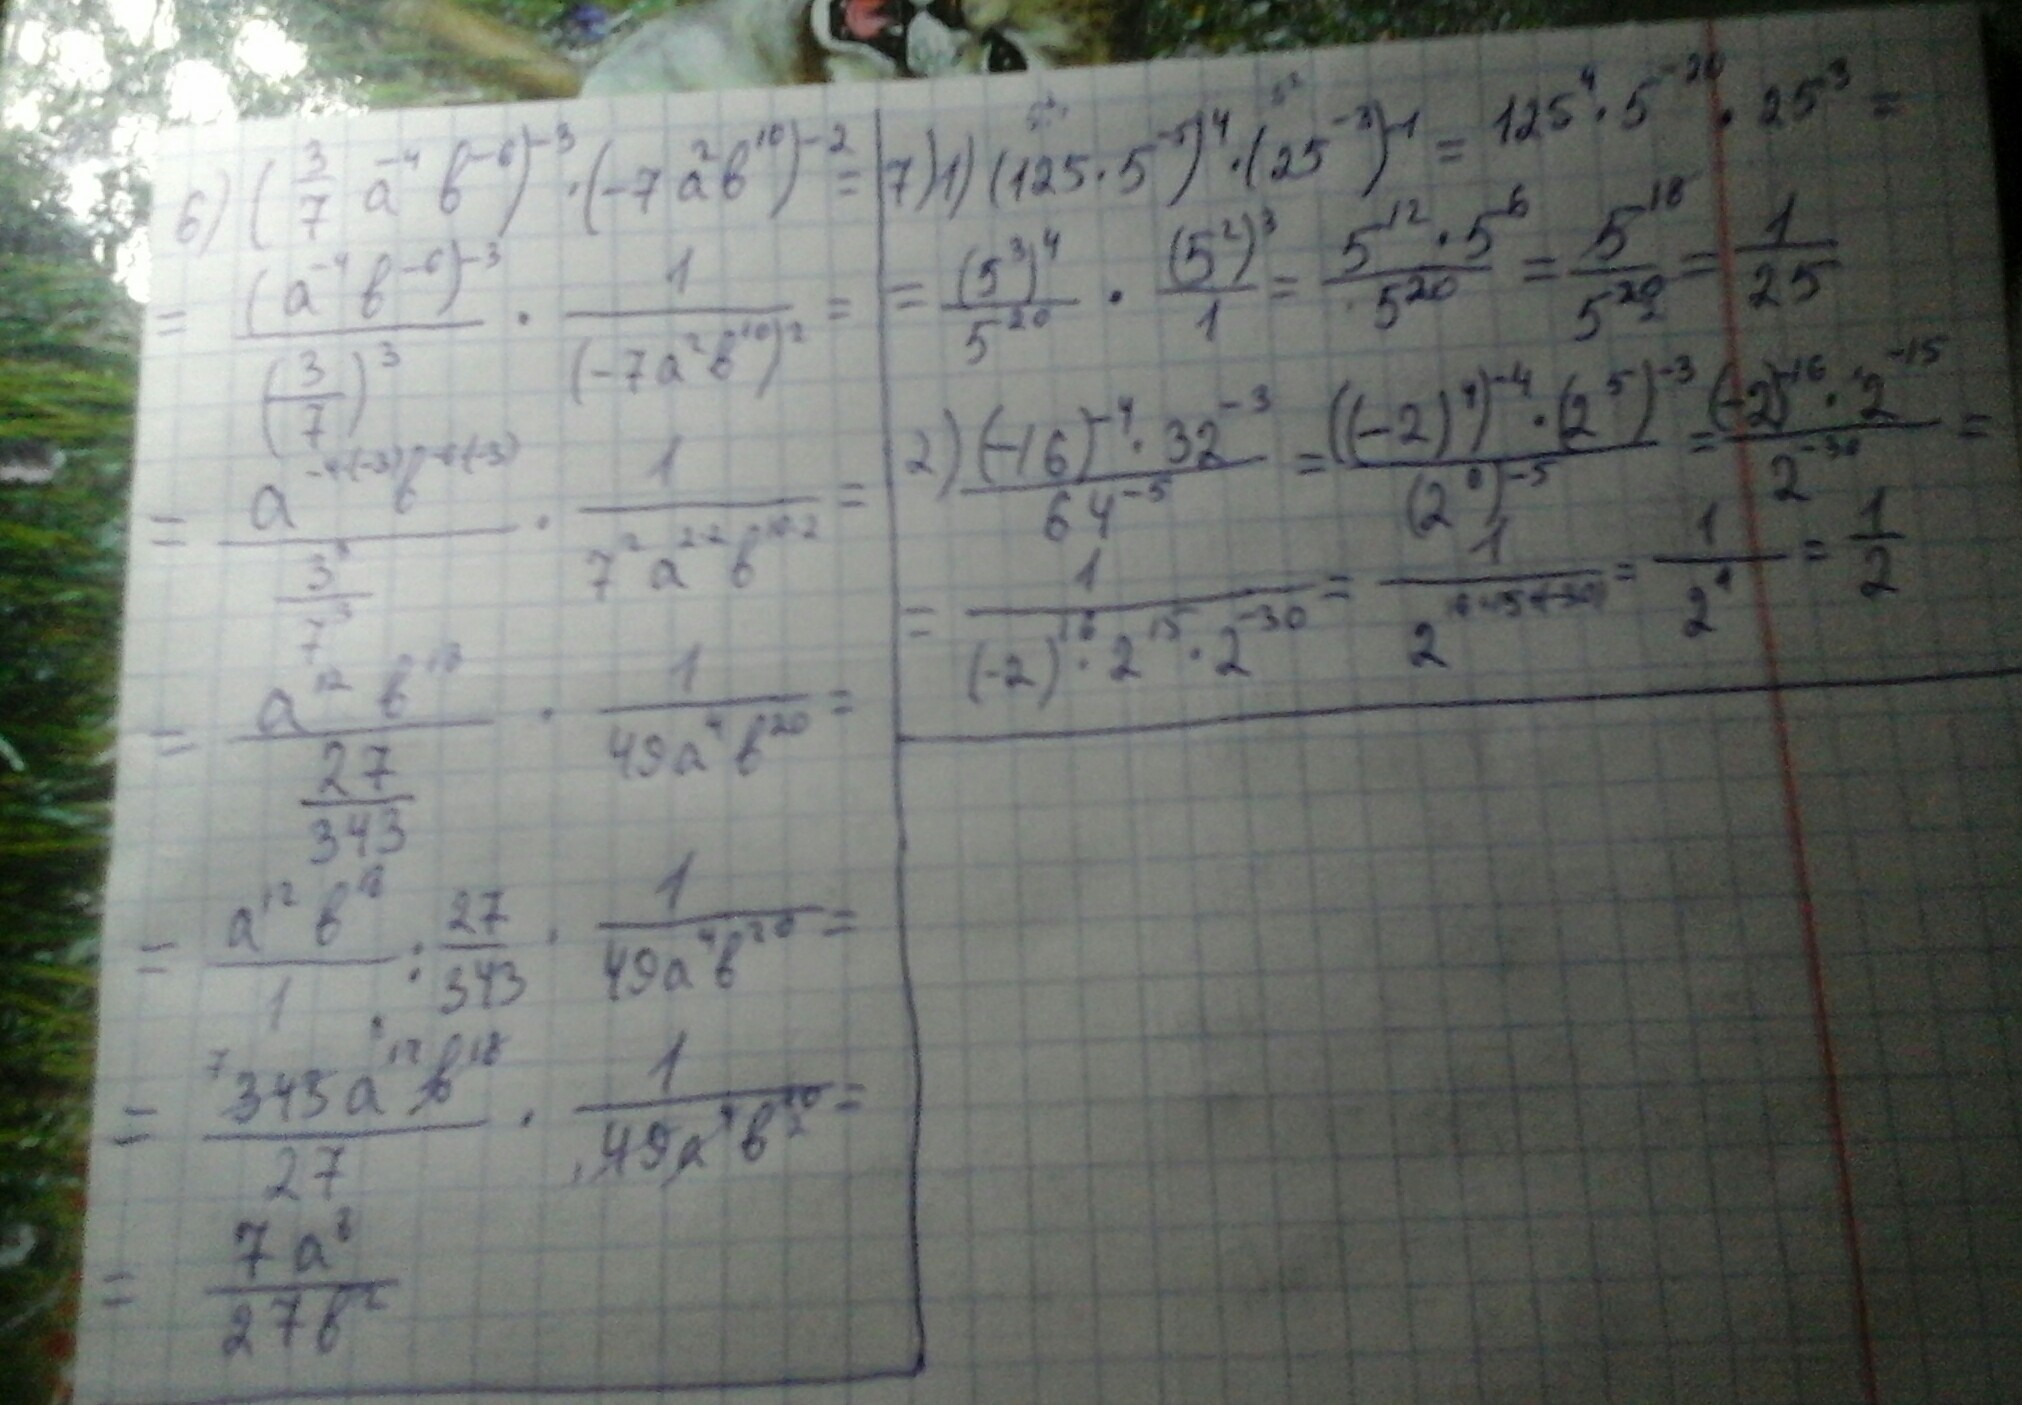 6) (3/7 a^-4 b^-6)^-3 · (-7a^2b^10)^-2 =
= (a^-4 b^-6)^-3 / (3/7)^3 · 1 / (-7a^2b^10)^2 =
= a^-4·(-3) b^-6·(-3) / (3^3/7^3) · 1 / 7^2 a^2·2 b^10·2 =
= a^12 b^18 / (27/343) · 1 / 49a^4b^20 =
= a^12 b^18 / 1 : 27/343 · 1 / 49a^4b^20 =
= 343a^12b^18 / 27 · 1 / 49a^4b^20 =
= 7a^8 / 27b^2
7) 1) (125·5^-5)^4 · (25^-3)^-1 = 125^4 · 5^-20 · 25^3 =
= (5^3)^4 / 5^20 · (5^2)^3 / 1 = 5^12 · 5^6 / 5^20 = 5^18 / 5^20 = 1/25
2) (-16)^-4 · 32^-3 / 64^-5 = ((-2)^4)^-4 · (2^5)^-3 / (2^6)^-5 = (-2)^-16 · 2^-15 / 2^-30 =
= 1 / (-2)^16 · 2^15 · 2^-30 = 1 / 2^16+15+(-30) = 1 / 2^1 = 1/2